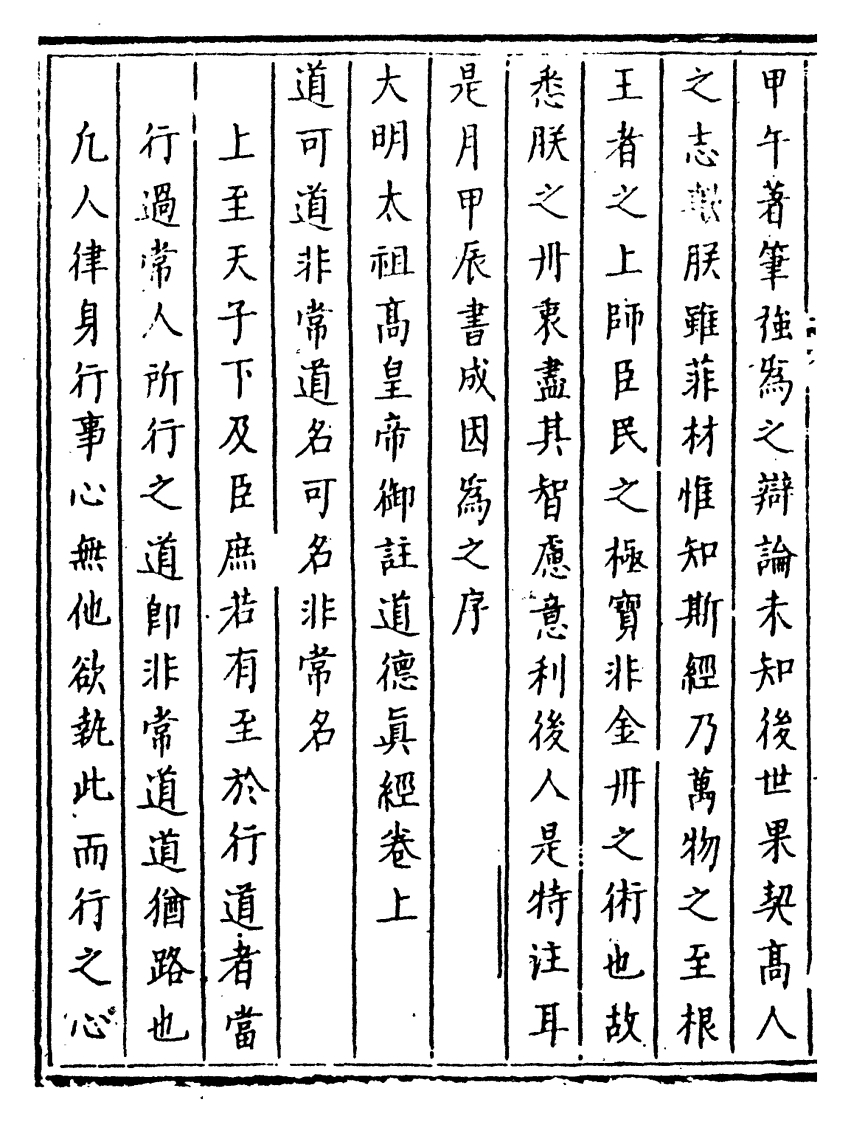 甲午著筆強為之辯論未知後世果契高人
之志歟朕雖菲材惟知斯經乃萬物之至根
王者之上師臣民之極寶非金丹之術也故
悉朕之丹衷盡其智慮意利後人是特註耳
是月甲辰書成因為之序
大明太祖高皇帝御註道德眞經卷上
道可道非常道名可名非常名
上至天子下及臣庶若有至於行道者當
行過常人所行之道即非常道道猶路也
凡人律身行事心無他欲執此而行之心